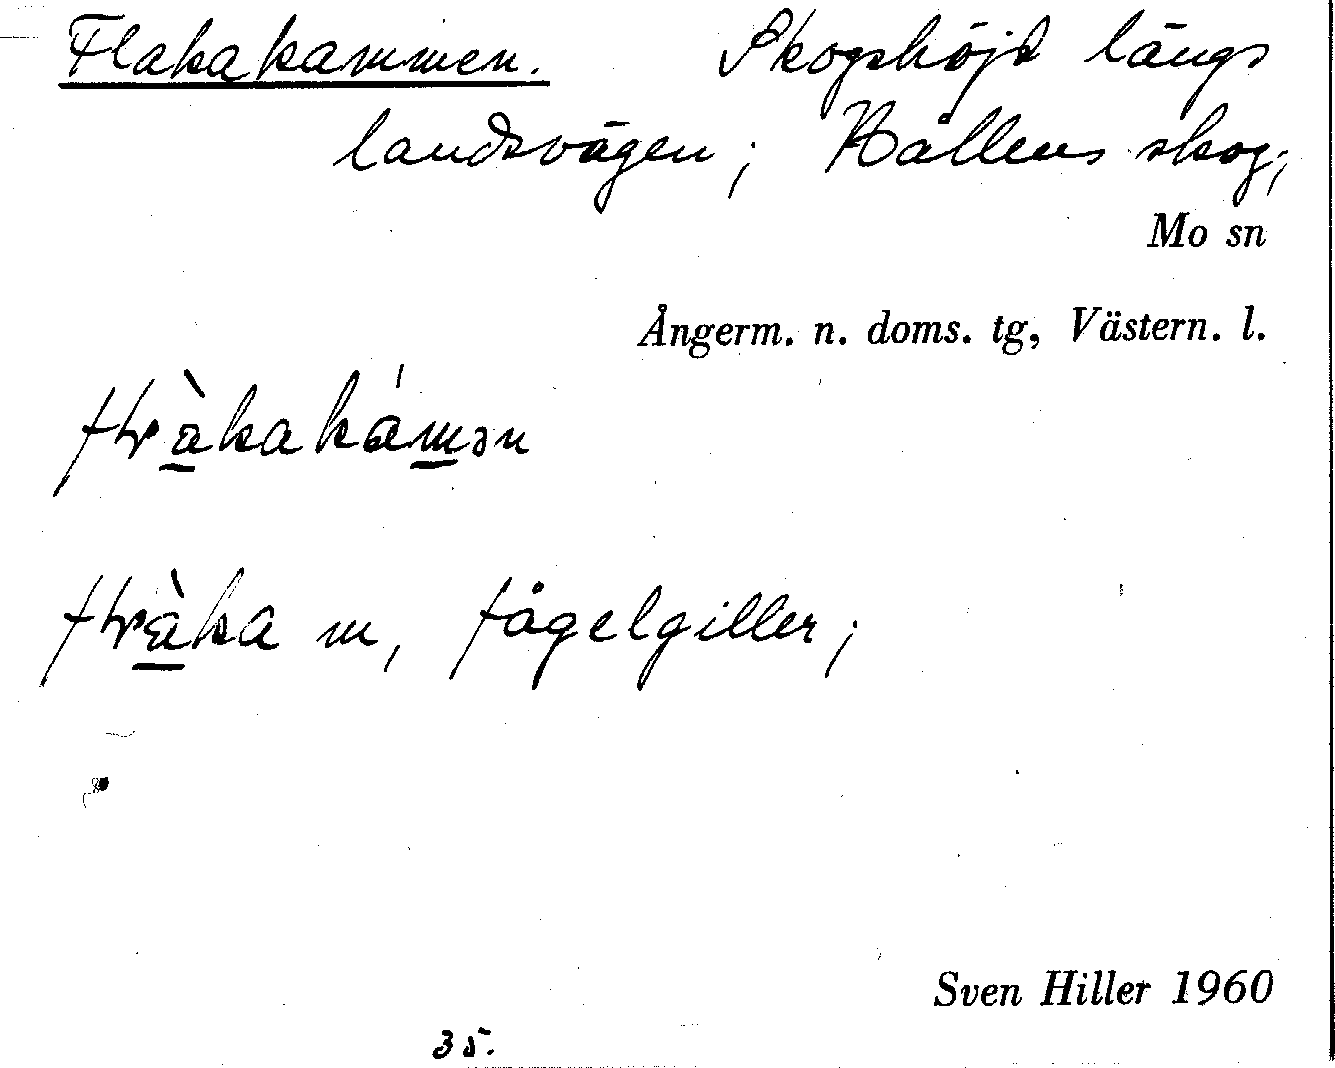 Flakakammen. Skogshöjd längs
landsvägen; Hållens skog;
Mo sn
Ångerm. n. doms. tg, Västern. l.
fɽàkakámən
fɽàka m, fågelgiller;
Sven Hiller 1960
35.